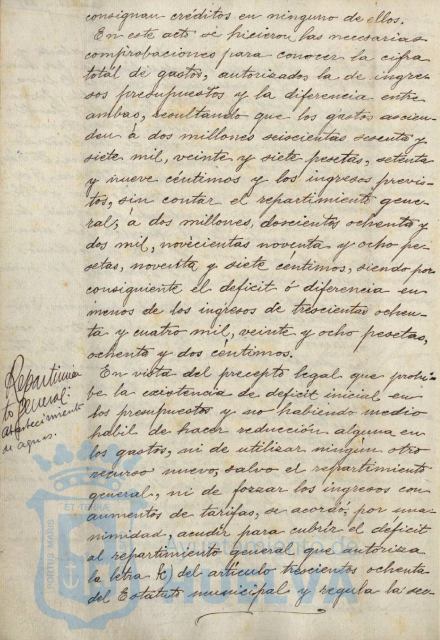 consignan créditos en ninguno de ellos.
En este acto se hicieron las necesarias
comprobaciones para conocer la cifra
total de gastos, autorizados la de ingre-
sos presupuestos y la diferencia entre
ambas, resultando que los gastos ascien-
den á dos millones seiscientas sesenta y
siete mil, veinte y siete pesetas, setenta
y nueve céntimos y los ingresos previs-
tos, sin contar el repartimiento gene-
ral, á dos millones, doscientos ochenta y
dos mil, novecientas noventa y ocho pe-
setas, noventa y siete céntimos, siendo por
consiguiente el deficit ó diferencia en
menos de los ingresos de trescientas ochen-
ta y cuatro mil, veinte y ocho pesetas,
ochenta y dos céntimos.
Repartimien
to General:
abastecimiento
de aguas.
En vista del precepto legal que prohi-
be la existencia de deficit inicial en
los presupuestos y no habiendo medio
habil de hacer reducción alguna en
los gastos, ni de utilizar ningun otro
recurso nuevo, salvo el repartimiento
general, ni de forzar los ingresos con
aumentos de tarifas, se acordó, por una-
nimidad, acudir para cubrir el deficit
al repartimiento general que autoriza
la letra del artículo trescientos ochenta
del Estatuto municipal y regula la sec-
PORTUS MARIS
ET TERRÆ